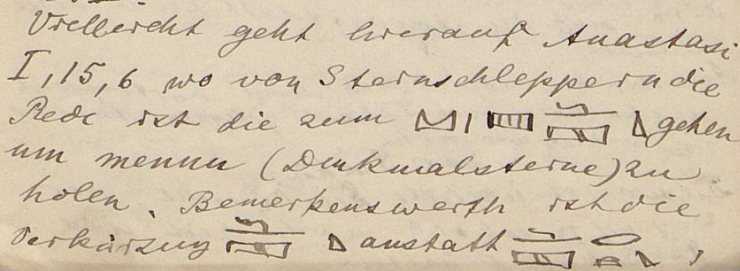 Vielleicht geht hierauf Anastasi
I, 15, 6 wo von Steinschleppern die
Rede ist die zum gehen
um mennu (Denkmalsteine) zu
holen. Bemerkenswerth ist die
Verkürzung anstatt ,